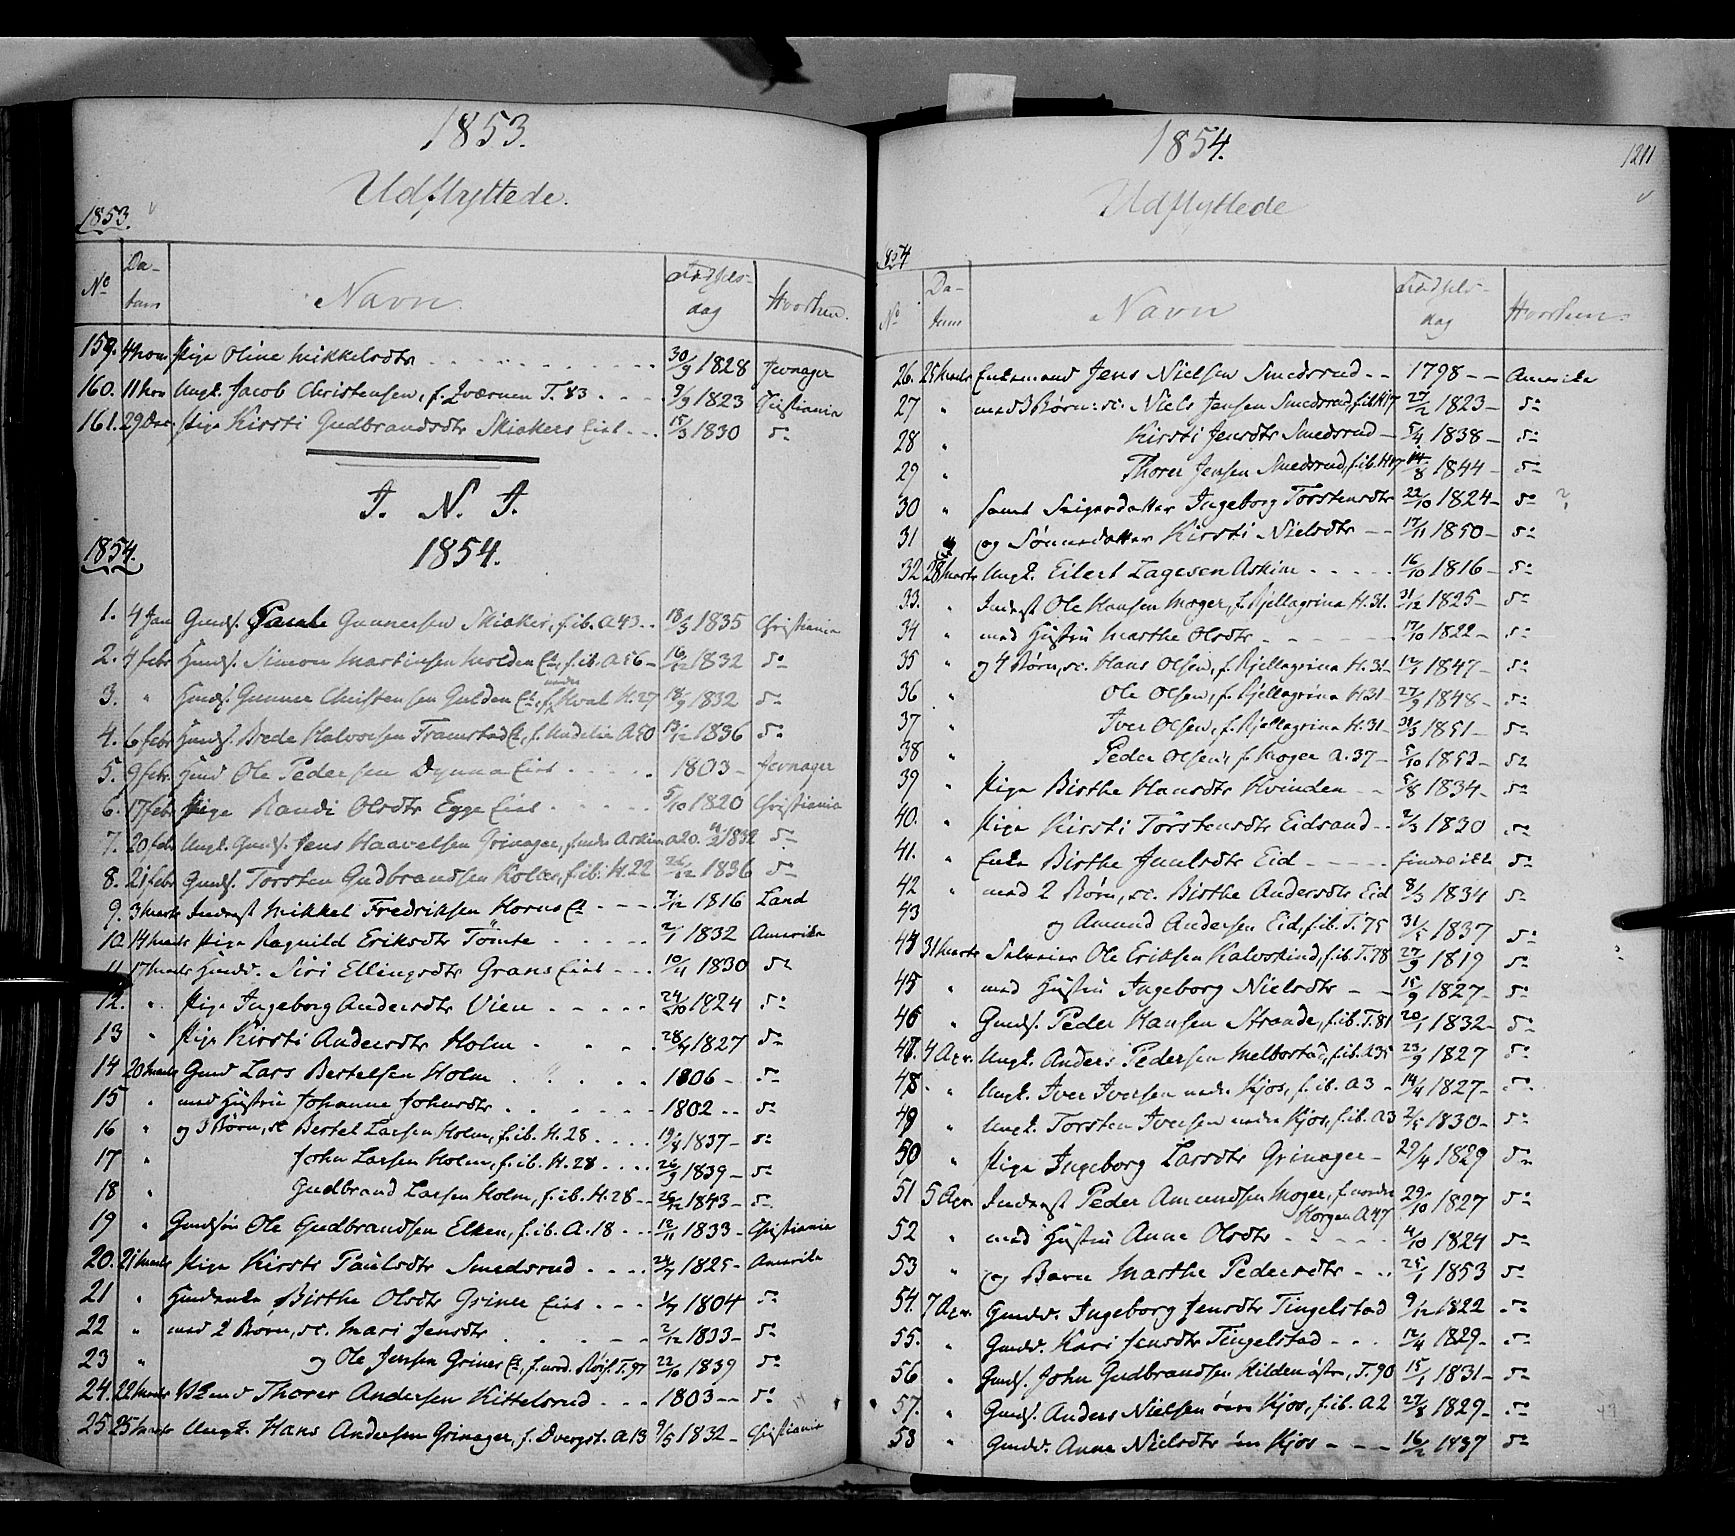 1853.
Udflyttede.
1853.
No Da-tum Navn Fødsels-dag Hvorhen.
159. 4 Nov Pige Oline Mikkelsdtr 30/9 1828 Jevnager
160. 11 Nov Ungk. Jacob Christensen, f. T. 83 9/9 1823 Christiania
161. 29 Dec. Pige Kirsti Gudbrandsdtr Skiakers Eiet 15/3 1830 do
J. N. J.
1854. 1854.
1. 4 Jan Gmds. Paul Gunnersen Skiaker, f. ib. A 43 18/3 1835 Christiania
2. 4 Febr Simon Martinsen Molden Et, f. ib. A 56 16/12 1832 do
3. " Gunner Christensen Gulden Et, f. nordre Hval H. 27 18/9 1832 do
4. 6 Febr Brede Halvorsen Framstad Et, f. A 50 1836 do
5. 9 Febr. Ole Pedersen Dynna Eiet 1803 Jevnager
6. 17 Febr Pige Randi Olsdtr Egge Eiet 5/10 1820 Christiania
7. 20 Febr Ungk. Gmds. Jens Haavelsen Grinager, f. nedre Askim A 20. 1832 do
8. 21 Febr Gmds. Torsten Gudbrandsen f. ib. H. 22 26/12 1836 do
9. 3 Marts Inderst Mikkel Fredriksen Horns Et 7/12 1816 Land
10. 14 Marts Pige Ragnild Eriksdtr Tømte 2/1 1832 Amerika
11. 17 Marts Siri Ellingsdtr Grans Eiet 10/4 1830 do
12. " Pige Ingeborg Andersdtr Vien 24/10 1824 do
13 " Pige Kirsti Andersdtr Holm 28/4 1827 do
14 20 Marts Gmd Lars Bertelsen Holm 1806 do
15 " med Hustru Johanne Johnsdtr 1802 do
16 " og 3 Børn, sc Bertel Larsen Holm, f. ib. H. 28 19/8 1837 do
17 " John Larsen Holm, f. ib. H. 28 26/9 1839 do
18 " Gudbrand Larsen Holm, f. ib. H. 28 26/12 1843 do
19 " Gmdsøn Ole Gudbrandsen Elken, f. ib. A. 18 12/11 1833 Christiania
20. 21 Marts Pige Kirsti Paulsdtr Smedsrud 24/7 1825 Amerika
21 " Birthe Olsdtr Griner Eiet 1/7 1804 do
22 " med 2 Børn, sc. Mari Jensdtr 2/12 1833 do
23 " og Ole Jensen Griner Et, f. T. 97 22/10 1839 do
24. 22 Marts Thorer Andersen Kittelsrud 1803 do
25 25 Marts Ungk. Hans Andersen Grinager, f. Dvergst. A 13 9/5 1832 Christiania
1854. 1211
Udflyttede
1854
No Da-tum Navn Fødsels-dag Hvorhen.
26. 25 Marts Enkemand Jens Nielsen Smedsrud 1798 Amerika
27 " med 3 Børn: sc. Niels Jensen Smedsrud, f. ib. H 17 27/12 1823 do
28 " Kirsti Jensdtr Smedsrud 5/4 1838 do
29 " Thorer Jensen Smedsrud, f. ib. H 17 14/8 1844 do
30 " samt Svigerdatter Ingeborg Torstensdtr 22/10 1824 do ?
31 " og Sønnedatter Kirsti Nielsdtr 17/11 1850 do
32 28 Marts Ungk. Eilert Lagesen Askim 16/10 1816 do
33. " Inderst Ole Hansen Moger, f. Kjellagrina H. 31. 31/12 1825 do
34 " med Hustru Marthe Olsdtr 17/10 1822 do
35 " og 4 Børn, sc. Hans Olsen, f. Kjellagrina H. 31 12/1 1847 do
36 " Ole Olsen, f. Kjellagrina H. 31 27/9 1848 do
37 " Iver Olsen, f. Kjellagrina H. 31 31/3 1851 do
38 " Peder Olsen, f. Moger A. 37 5/10 1853 do
39 " Pige Birthe Hansdtr Kvinden 5/8 1834 do
40. " Pige Kirsti Torstensdtr Eidsand 2/3 1830 do
41. " Enke Birthe Juulsdtr Eid findes ikke do
42 " med 2 Børn, sc. Birthe Andersdtr Eid 8/3 1834 do
43 og Amund Andersen Eid, f. ib. T. 75 31/5 1837 do
44 31 Marts Selveier Ole Eriksen Halvoskind, f. ib. T. 78 22/9 1819 do
45 " med Hustru Ingeborg Nielsdtr 15/9 1827 do
46 " Gmds. Peder Hansen Strande, f. ib. T. 81 20/1 1832 do
47. 4 Apr. Ungk. Anders Pedersen Melbostad, f. ib. A 35 23/9 1827 do
48 " Ungk. Iver Iversen nedre Kjos, f. ib. A 3 14/4 1827 do
49 " Ungk. Torsten Iversen nedre Kjos, f. ib. A 3 1830 do
50 " Pige Ingeborg Larsdtr Grinager 29/4 1829 do
51 5 Apr. Inderst Peder Amundsen Moger, f. nordre Horgen A 47 29/10 1827 do
52 " med Hustru Anne Olsdtr 4/10 1824 do
53 " og Barn Marthe Pedersdtr 25/1 1853 do
54. 7 Apr. Gmdd. Ingeborg Jensdtr Tingelstad 9/12 1822 do
55. " Gmdd. Kari Jensdtr Tingelstad 12/4 1829 do
56 " Gmds. John Gudbrandsen Hilden østre, T. 90 15/1 1831 do
57. " Gmds. Anders Nielsen øvre Kjos, f. ib. A 2 27/8 1829 do
58 " Gmdd. Anne Nielsdtr øvre Kjos 16/2 1837 do